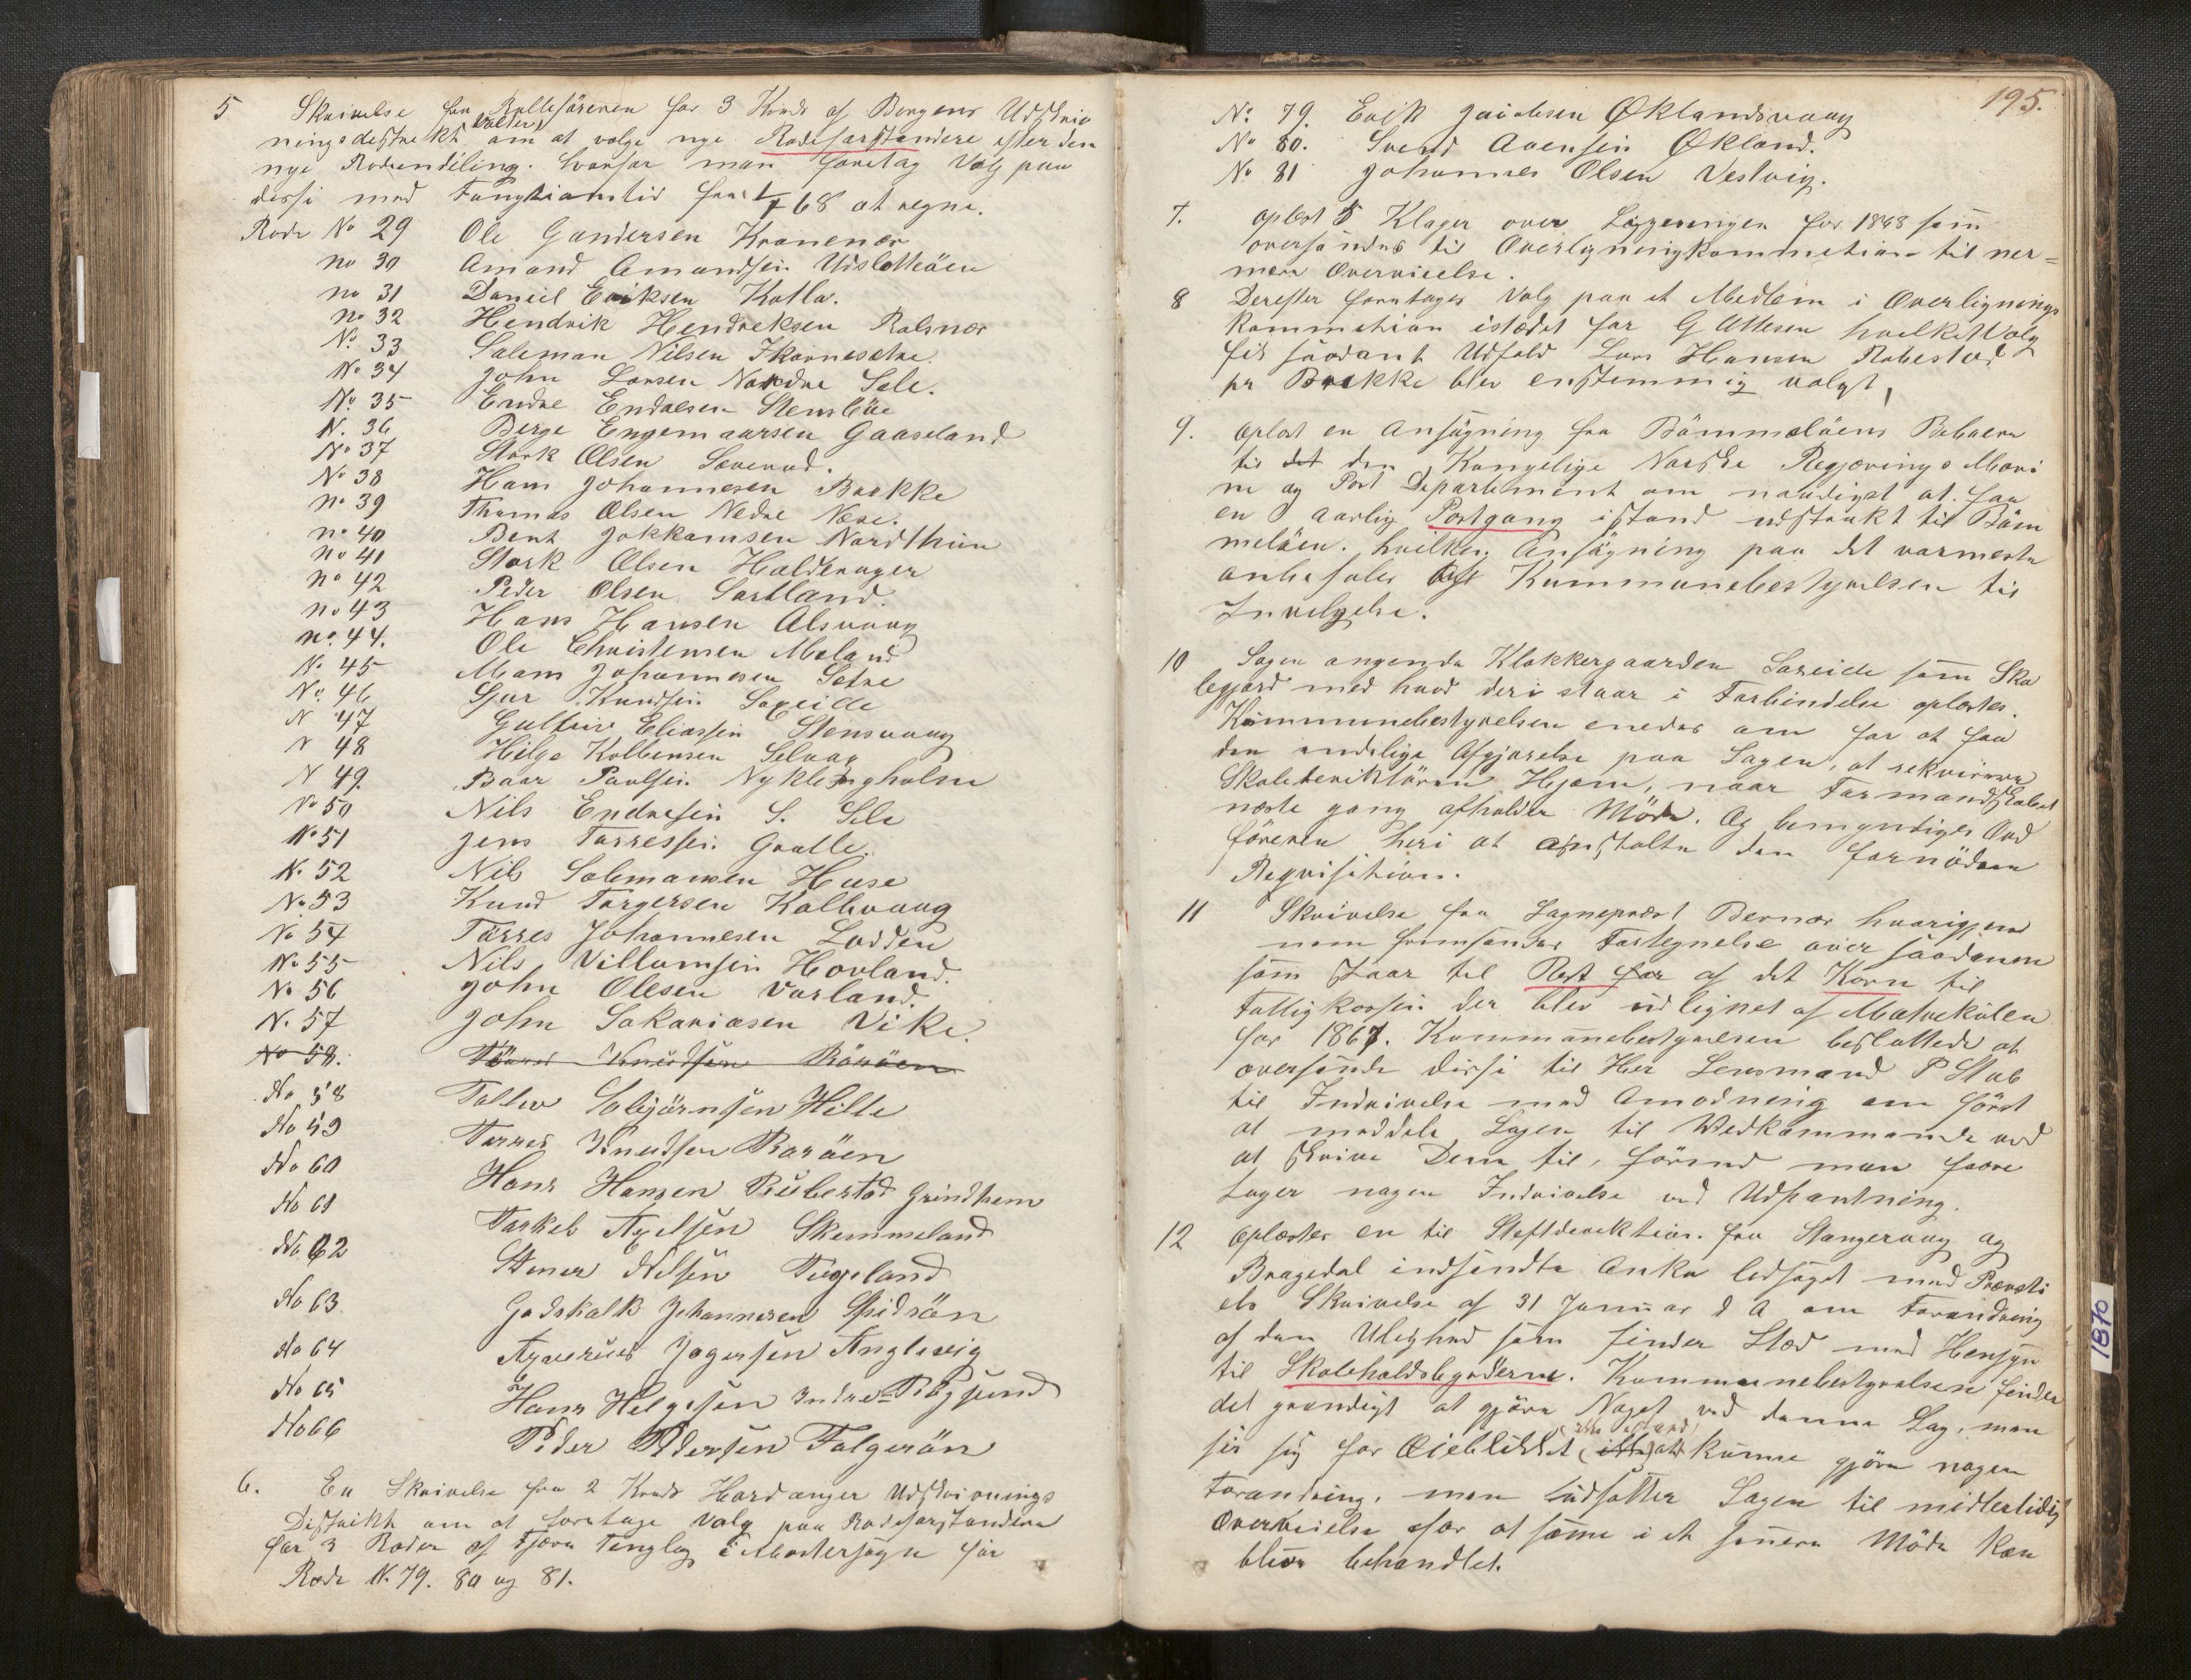 5 Skrivelse fra Rulleføreren for 3 Kreds af Bergens Udskriv
ningsdestrekt Valders om at vælge nye Rodeforstandere efter den
nye Rodeindeling. hvorfor man foretog Valg paa
dessi med Fungtionstid fra 1/1 68 at regne.
Rode No 29 Ole Gundersen Kranenæs
no 30 Amand Amundsen Udsletthöen
no 31 Daniel Eriksen Katla.
no 32 Hendrik Hendreksen Ralsnæs
No 33 Saleman Nilsen Skarnesetre
No 34 John Larsen Nordre Sele.
No 35 Endre Endresen Stensböe
N. 36 Berge Engemaarsen Gaaseland
No 37 Stork Olsen Sæverud.
No 38 Hans Johannesen Brekke
no 39 Thomas Olsen Nedre Næse.
no 40 Bent Jokkamsen Nordthun
no 41 Stork Olsen Haldkrager
no 42 Peder Olsen Sortland.
no 43 Hans Hansen Alsvaag
no 44. Ole Christensen Meland
No 45 Mons Johannesen Setre
No 46 Sjur Knudsen Sareide
N 47 Gutterm Eliassen Stensvaag
N 48 Helge Kolbensen Selvaag
N 49. Baar Paulsen Nyklingholm
No 50 Nils Endresen S. Sele
No 51 Jens Tørressen Gralle.
N. 52 Nils Salemonsen Huse
No 53 Knud Torgersen Kallevaag
No 54 Tørres Johannesen Lodden
No 55 Nils Villumsen Hovland.
No 56 John Olesen Vorland.
N. 57 John Sakariasen Vike.
No 58. Törres Knudsen Röröen
No 58 Tollev Salbjörnsen Hille
No 59 Tørres Knudsen Roröen
No 60 Hans Hansen Rubestad Grindhem
No 61 Torkel Axelsen Skimmeland
No 62 Stener Nilsen Tegeland
No 63. Godskalk Johannesen Spidsön
No 64 Asverius Jogensen Anglevig
No 65 Hans Helgesen Indre-Risjund
No 66 Peder Pedersen Folgerön
6. En Skrivelse fra 2 Kreds Hardanger Udskrivnings
Distrikt om at foretage Valg paa Rodeforstandere
for 3 Roder af Fjære Tinglag i Mostersogn for
Rode N. 79. 80 og 81.
195.
No 79. Erik Jacobsen Øklandsvaag
No 80. Svend Avensen Økland.
No 81 Johannes Olsen Vestvig.
7. oplæst 5 Klager over Ligneringen for 1868 som
oversendes til Overligningkommetion til ner=
mere Overveielse.
8 Derefter foretages Valg paa et Medlem i Overlignings
Kommetion istædet for G Attesen hvilket Valg
fik saadant Udfald Lars Hansen Rubestad
pr Brekke blev enstemmig valgt,
9. oplæst en Ansøgning fra Bömmelöens Beboere
til det den Kongelige Norske Regjærings Mari
ne og Post Departement om naadigst at faa
en aarlig Postgang istand udstrakt til Böm
melöen. hvilken Ansøgning paa det varmeste
anbefales af Kommunebestyrelsen til
Invelgelse.
10 Sagen angende Klokkergaarden Sareide som Sko
legjord med hvad deri staar i Forbindelse oplæstes.
Kommunebestyrelsen enedes om for at faa
den endelige Afgjørelse paa Sagen, at rekvirere
Skoledirektören Hjem, naar Formandskabet
næste gang afholder Möde. Og bemyndiges Ord
föreren heri at anstalte den fornödne
Reqvisition.
11 Skrivelse fra Sogneprest Bernær hvorigjen
nem fremsendes Fortegnelse over saadanne
som staar til Rest for af det Korn til
Fattigkassen der blev udlignet af Matrekulen
for 1867. Kommunebestyrelsen besluttede at
oversende dissi til Her Lensmand P Stub
til Indrivelse med Anmodning om först
at meddele Sagen til Vedkommende ved
at skrive Dem til, förend man foretager
noger Indrivelse ved Udpantning.
12 oplæstes en til Steftdirektion fra Stangervaag og
Bragedal indsendte Anke ledsaget med Prousti
ets Skrivelse af 31 Januar d A om Forandring
af den Ulighed som finder Sted med Hensyn
til Skoleholdsbyrderne. Kommunebestyrelsen finder
det grundigt at gjöre Noget ved denne Sag, man
ser sig for Øieblikket (ikke istand) ikke at kunne gjöre nogen
Forandring, men udsætter Sagen til midlertidig
Overveielse for at samme i et senere Möde kan
blive behandlet.
1870